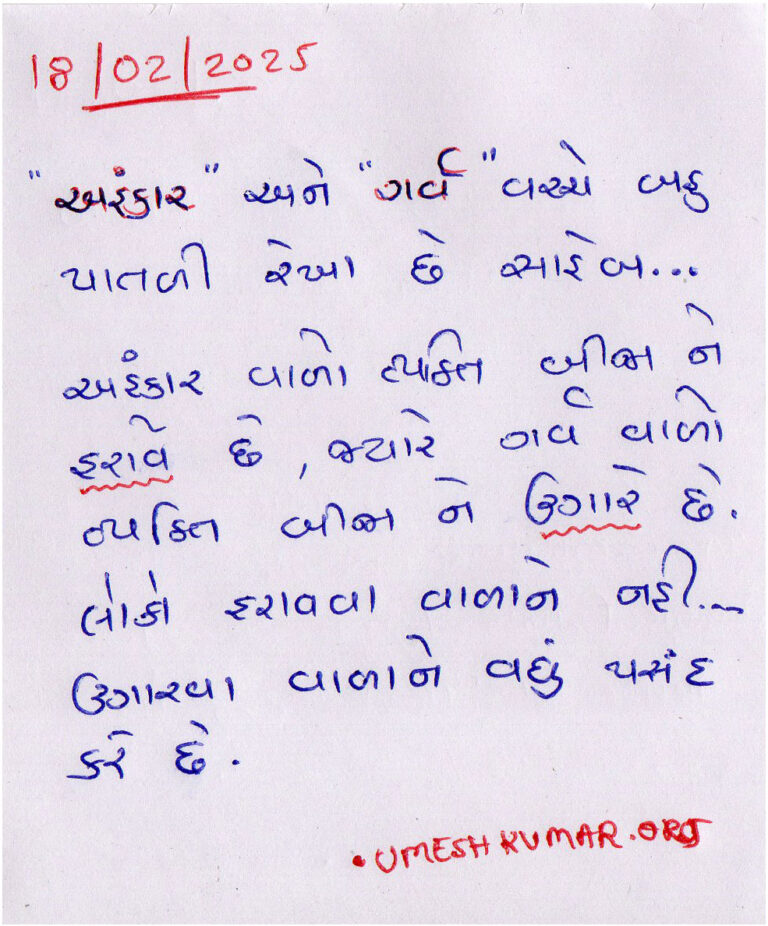 18/02/2025
"અહંકાર" અને "ગર્વ" વચ્ચે બહુ
પાતળી રેખા છે સાહેબ...
અહંકાર વાળો વ્યકિત બીજા ને
હરાવે છે, જ્યારે ગર્વ વાળો
વ્યકિત બીજા ને ઉગારે છે.
લોકો હરાવવા વાળાને નહી...
ઉગારવા વાળાને વધું પસંદ
કરે છે.
•UMESHKUMAR.ORG